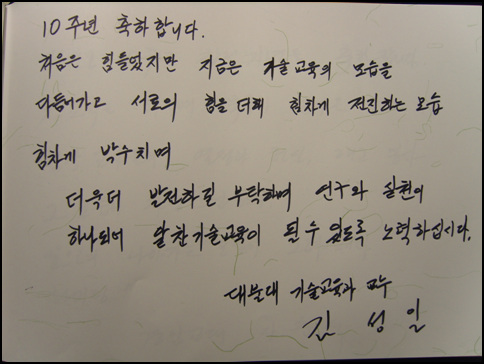 10주년 축하합니다.
처음은 힘들었지만 지금은 기술교육의 모습을
다듬어가고 서로의 힘을 더해 힘차게 전진하는 모습
힘차게 박수치며
더욱더 발전하길 부탁하며 연구와 실천이
하나되어 알찬기술교육이 될 수 있도록 노력하십시다.
기술교육과 교수
김성일